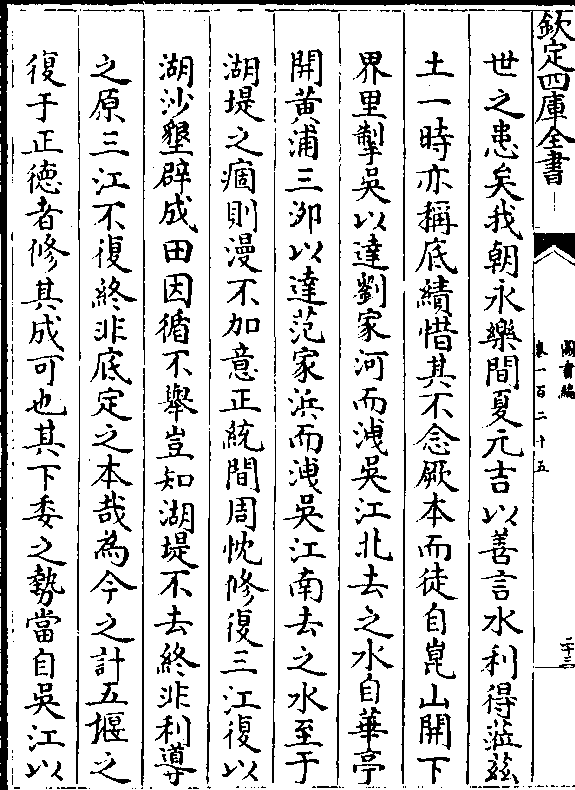 欽定四庫全書
圖書編
卷一百二十五
二十三
世之患矣我朝永樂間夏元吉以善言水利得蒞茲
土一時亦稱底績惜其不念厥本而徒自崑山開下
界里掣吳以達劉家河而洩吳江北去之水自華亭
開黃浦三泖以達范家浜而洩吳江南去之水至于
湖堤之痼則漫不加意正統間周忱修復三江復以
湖沙墾辟成田因循不舉豈知湖堤不去終非利導
之原三江不復終非底定之本哉為今之計五堰之
復于正德者修其成可也其下委之勢當自吳江以